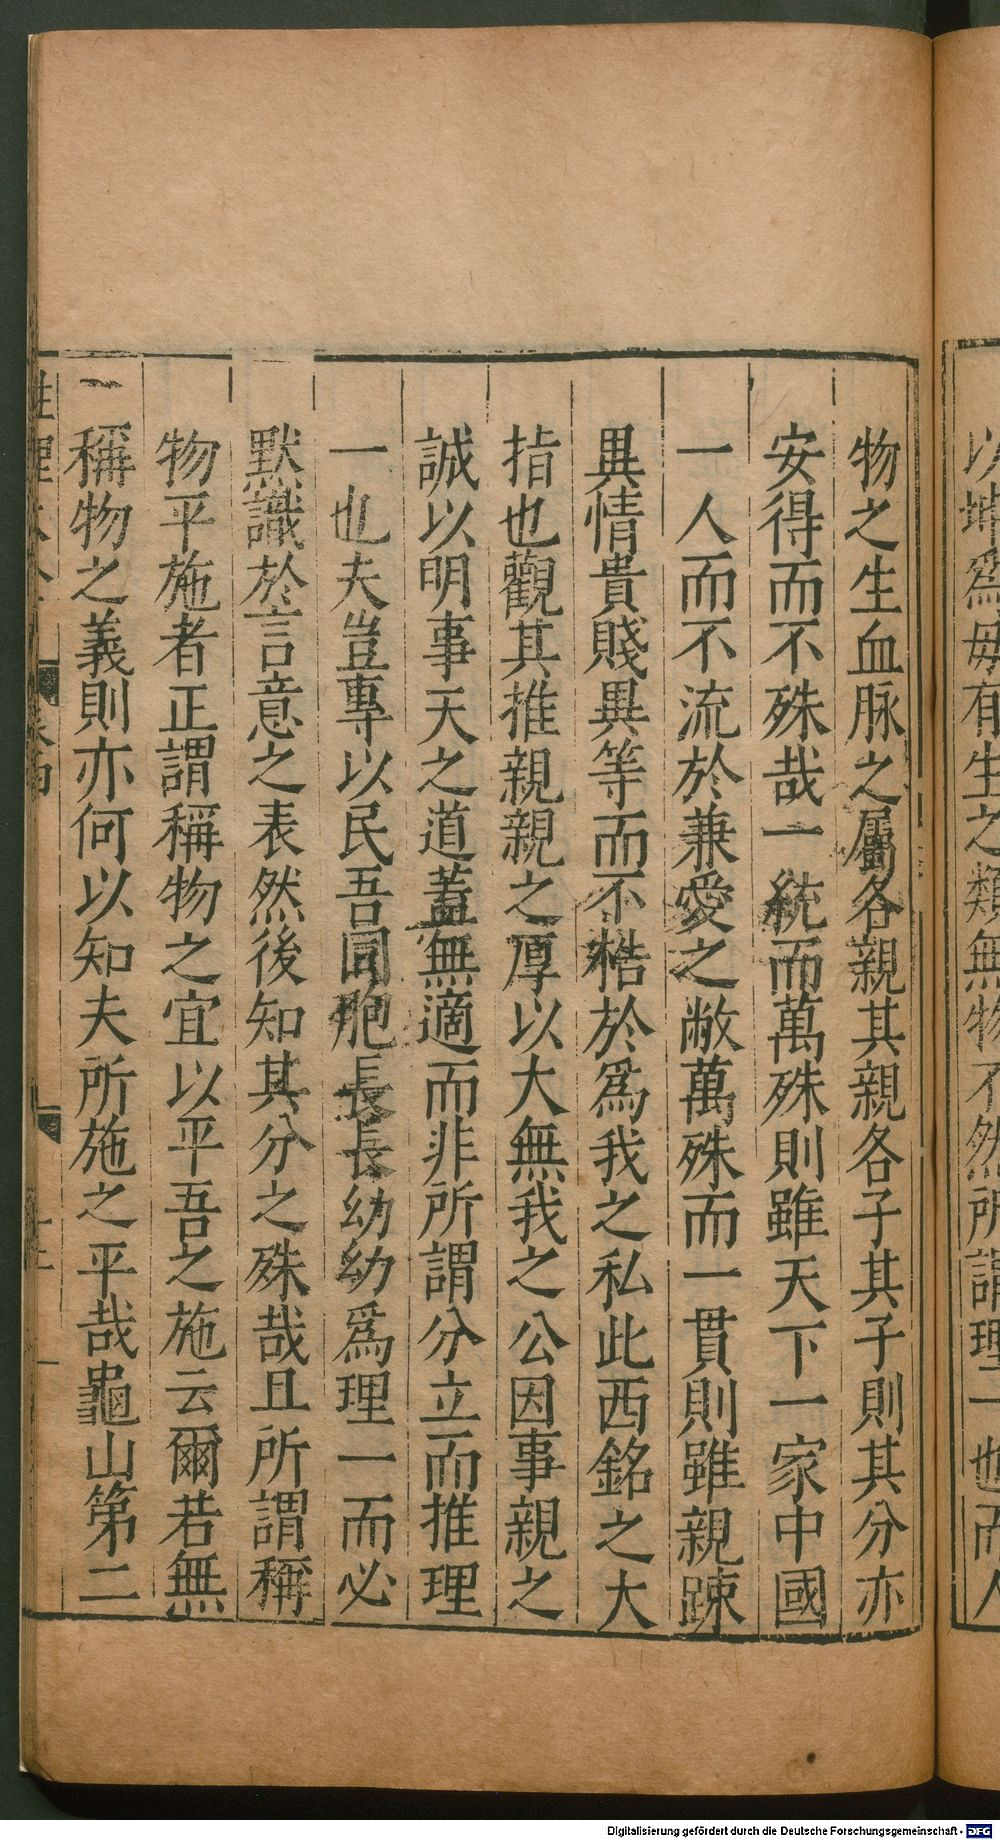 以坤爲母有生之類無物不然所謂理一也而人
物之生血脉之屬各親其親各子其子則其分亦
安得而不殊哉一統而萬殊則雖天下一家中國
一人而不流於兼愛之敝萬殊而一貫則雖親踈
異情貴賤異等而不梏於爲我之私此西銘之大
指也觀其推親親之厚以大無我之公因事親之
誠以明事天之道蓋無適而非所謂分立而推理
一也夫豈專以民吾同胞長長幼幼爲理一而必
默識於言意之表然後知其分之殊哉且所謂稱
物平施者正謂稱物之宜以平吾之施云爾若無
稱物之義則亦何以知夫所施之平哉龜山第二
性理大全 卷四
Digitalisierung gefördert durch die Deutsche Forschungsgemeinschaft - DFG